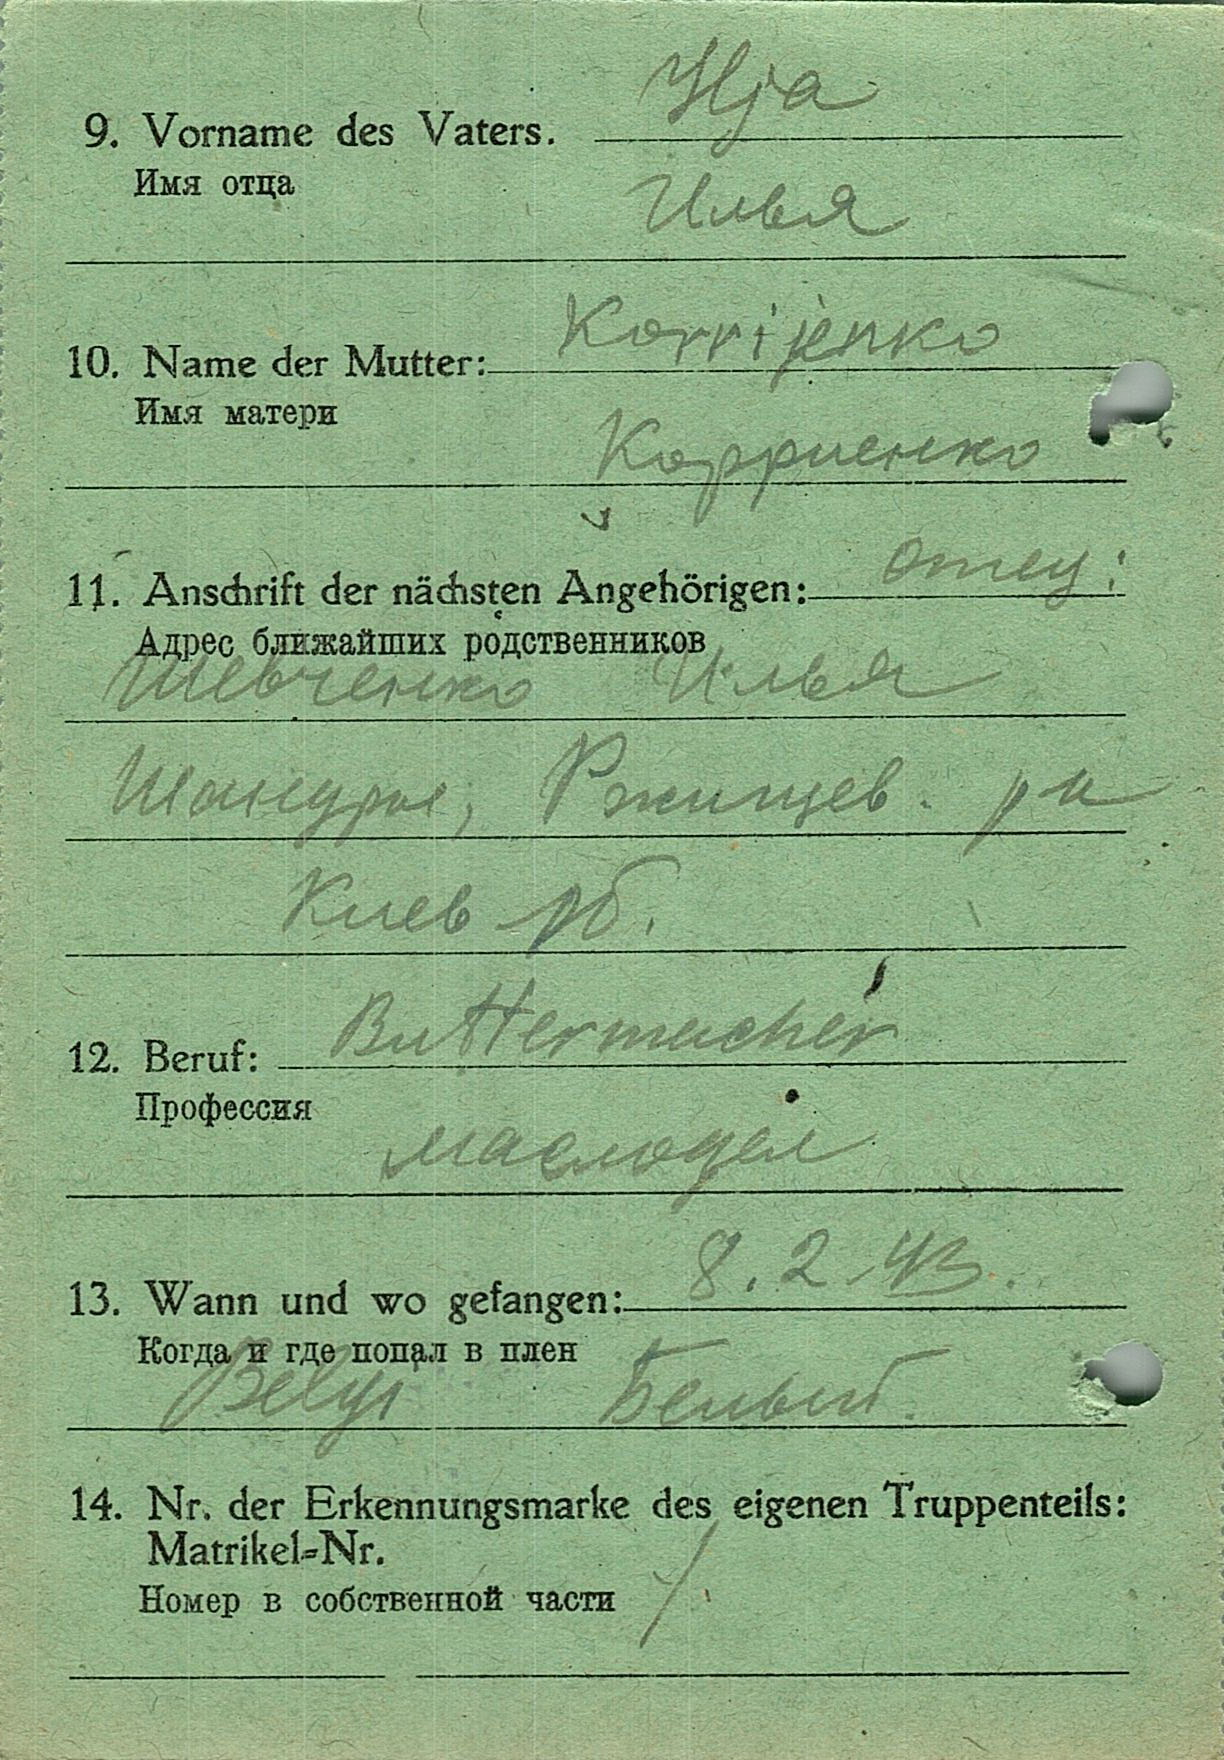 Ilja
9. Vorname des Vaters.
Имя отца
Илья
Korrijenko
10. Name der Mutter:
Имя матери
Корриенко
11. Anschrift der nächsten Angehörigen: отец:
Адрес ближайших родственников
Шевченко Илья
Шандра, Ржищев. р н
Киев об.
Buttermacher
12. Beruf:
Профессия
маслодел
8.2.43.
13. Wann und wo gefangen:
Когда и где попал в плен
Belyi Белый.
14. Nr. der Erkennungsmarke des eigenen Truppenteils:
Matrikel-Nr.
Номер в собственной части /